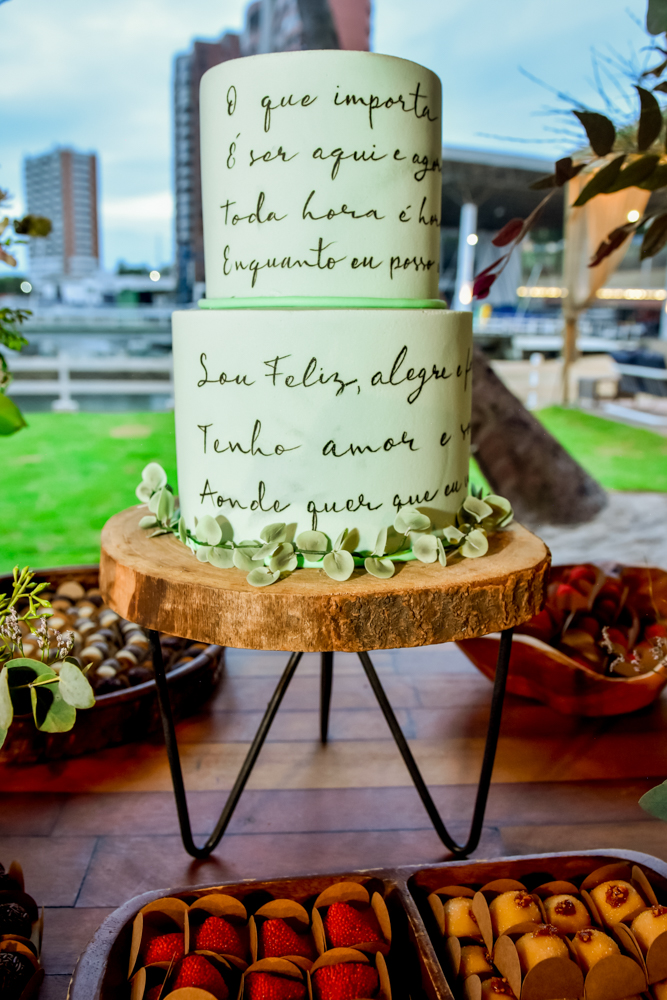 O que importa
É ser aqui e
toda hora é
Enquanto eu posso
Sou Feliz, alegre e
Tenho amor e
Aonde quer que eu